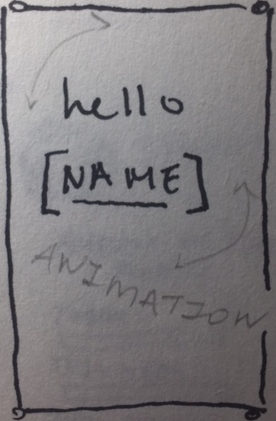 hello
[NAME]
ANIMATION